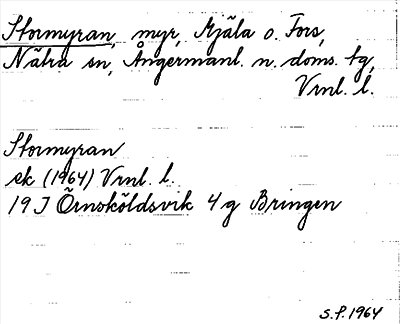 Stormyran, myr, Mjäla o. Fors,
Nätra sn, Ångermanl. n. doms. tg,
Vrnl. l.
Stormyran
ek (1964) Vrnl. l.
19 J Örnsköldsvik 4 g Bringen
S.F. 1964